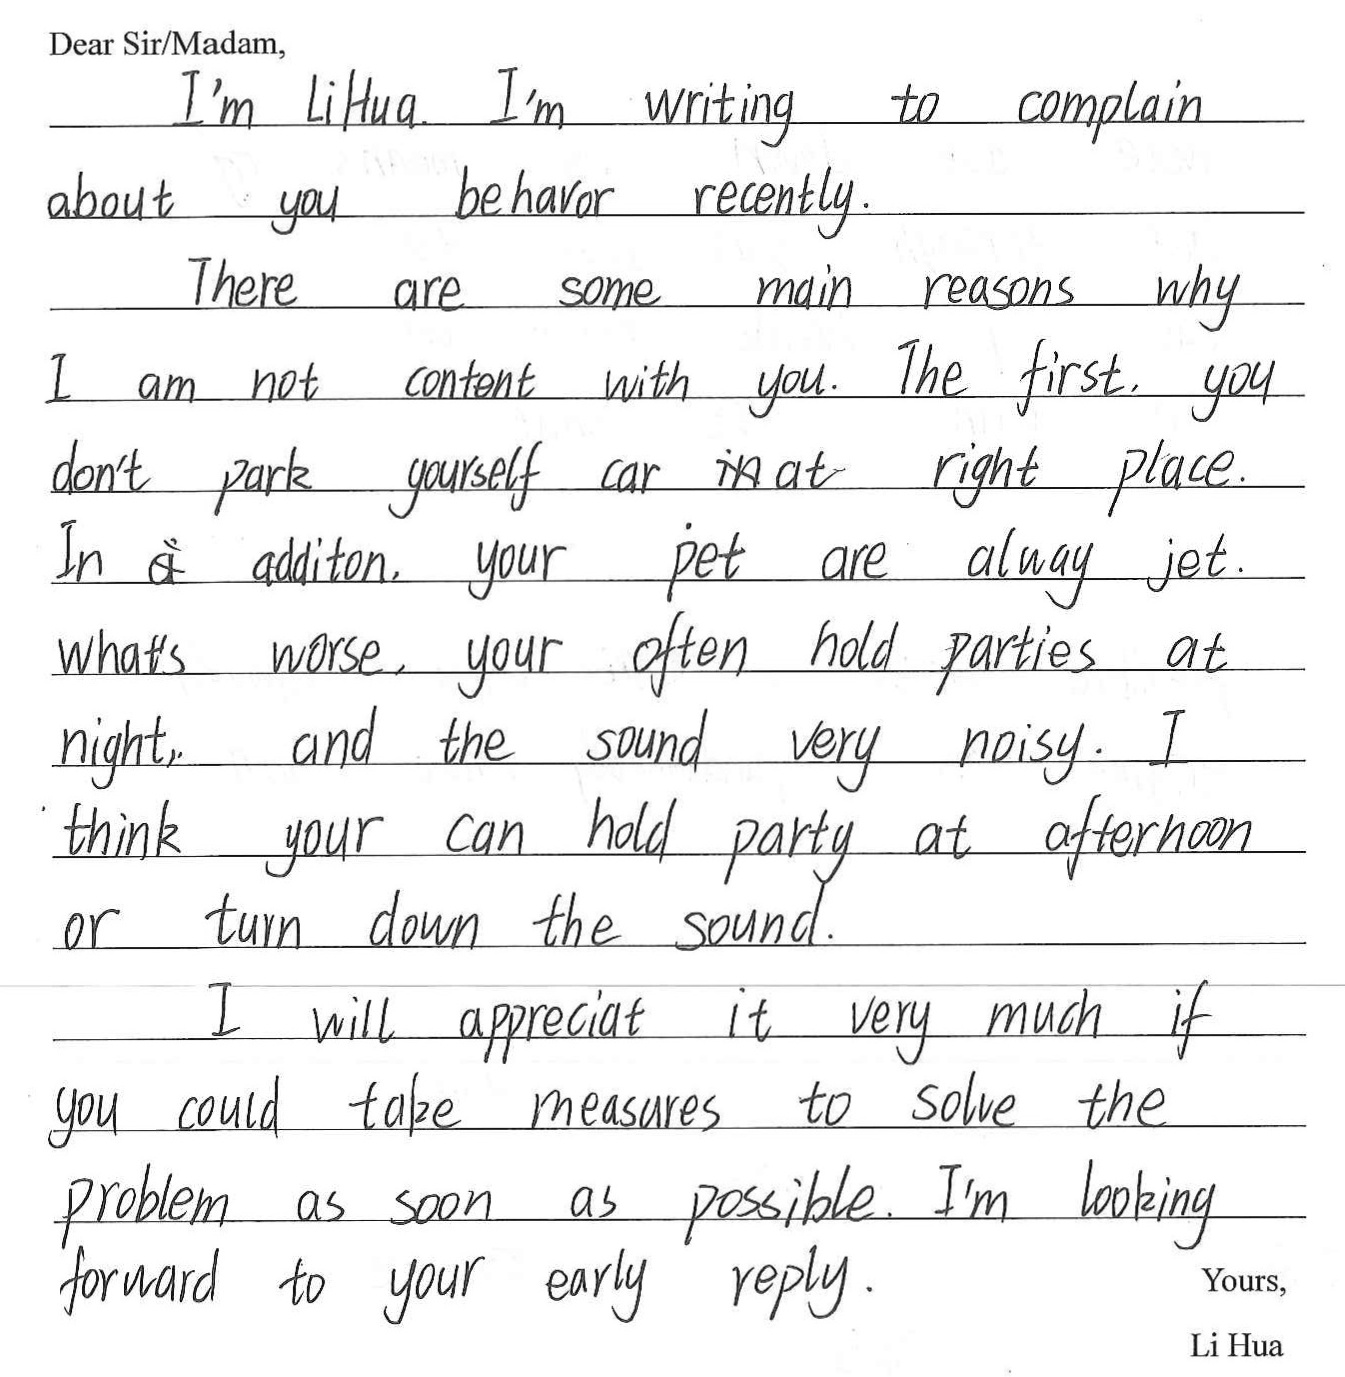 Dear Sir/Madam,
I'm LiHua. I'm writing to complain
about you behavor recently.
There are some main reasons why
I am not content with you. The first, you
don't park yourself car at right place.
In additon, your pet are alway jet.
what's worse, your often hold parties at
night, and the sound very noisy. I
think your can hold party at afternoon
or turn down the sound.
I will appreciat it very much if
you could take measures to solve the
problem as soon as possible. I'm looking
forward to your early reply.
Yours,
Li Hua